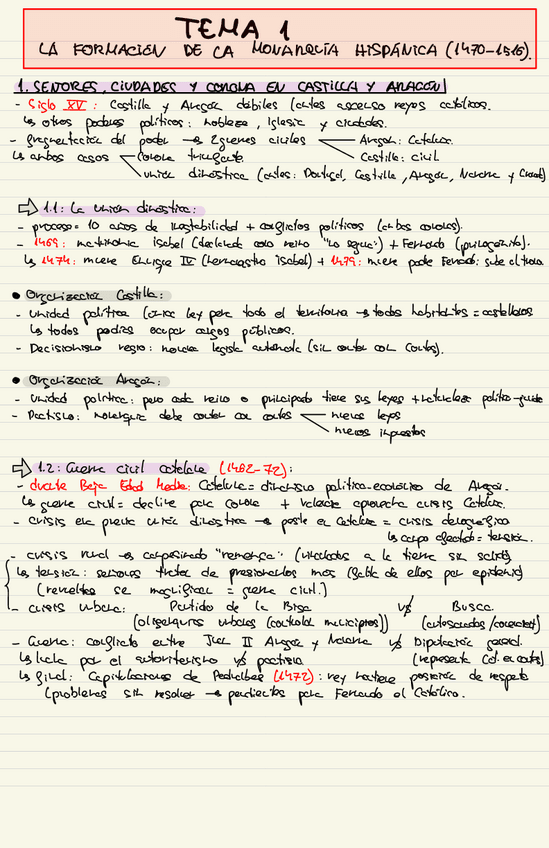 TEMA 1
LA FORMACIÓN DE LA MONARQUÍA HISPÁNICA (1470-1516).
1. SEÑORES, CIUDADES Y CORONA EN CASTILLA Y ARAGÓN
- Siglo XV: Castilla y Aragón débiles (antes ascenso reyes católicos.
↳ otros poderes políticos: nobleza, iglesia y ciudades.
- Fragmentación del poder → 2 guerras civiles Aragón: Cataluña.
Castilla: civil
↳ ambos casos corona triunfante.
unión dinástica (antes: Portugal, Castilla, Aragón, Navarra y Granada)
1.1: La unión dinástica:
- proceso = 10 años de inestabilidad + conflictos políticos (ambas coronas).
- 1469: matrimonio Isabel (declarada como reina "La Segura") + Fernando (primogénito).
↳ 1474: muere Enrique IV (hermanastro Isabel) + 1479: muere padre Fernando: sube al trono.
• Organización Castilla:
- unidad política (única ley para todo el territorio → todos habitantes = castellanos
↳ todos podían ocupar cargos públicos.
- Decisionismo regio: monarca legisla autónomo (sin contar con Cortes).
• Organización Aragón:
- unidad política: pero cada reino o principado tiene sus leyes + naturaleza político-jurídica
- Pactismo: monarquía debe contar con cortes nuevas leyes
nuevos impuestos
1.2: Guerra civil catalana (1462-72):
- durante Baja Edad Media: Cataluña = dinamismo político-económico de Aragón.
↳ guerra civil = declive para corona + Valencia aprovecha crisis Cataluña.
- crisis en plena unión dinástica → peste en Cataluña = crisis demográfica
↳ campo afectado = tensión.
- crisis rural → campesinado "remensa" (vinculados a la tierra sin salida)
↳ tensión: señores tratan de presionarlos más (falta de ellos por epidemia)
(revueltas se magnifican = guerra civil.)
- crisis urbana: Partido de la Biga v/s Busca
(oligarquías urbanas (controlan municipios)) (artesanos/comerciantes)
- Guerra: conflicto entre Juan II Aragón y Navarra v/s Diputación general.
↳ lucha por el autoritarismo v/s pactismo (representa Cat. en cortes)
↳ final: Capitulaciones de Pedralbes (1472): rey mantiene posición de respeto
(problemas sin resolver → pendientes para Fernando el Católico.